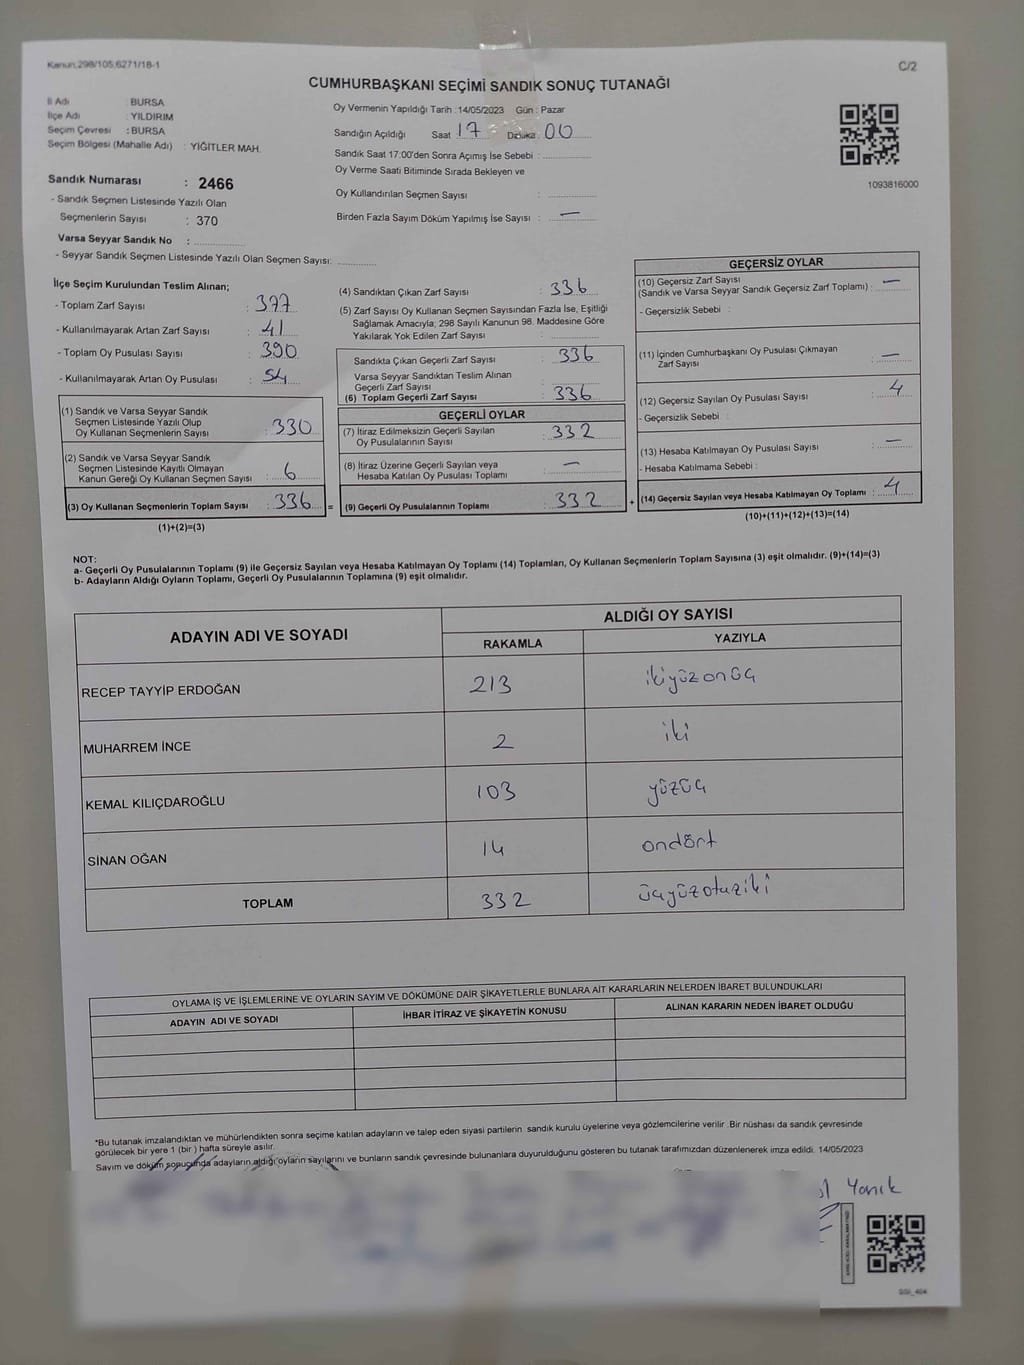 Kanun,298/105,6271/18-1
C/2
CUMHURBAŞKANI SEÇİMİ SANDIK SONUÇ TUTANAĞI
İl Adı : BURSA
İlçe Adı : YILDIRIM
Seçim Çevresi : BURSA
Seçim Bölgesi (Mahalle Adı) : YİĞİTLER MAH.
Sandık Numarası : 2466
- Sandık Seçmen Listesinde Yazılı Olan
Seçmenlerin Sayısı : 370
Varsa Seyyar Sandık No :
- Seyyar Sandık Seçmen Listesinde Yazılı Olan Seçmen Sayısı:
Oy Vermenin Yapıldığı Tarih :14/05/2023 Gün : Pazar
Sandığın Açıldığı Saat 17 Dakika 00
Sandık Saat 17:00'den Sonra Açımış İse Sebebi :
Oy Verme Saati Bitiminde Sırada Bekleyen ve
Oy Kullandırılan Seçmen Sayısı :
Birden Fazla Sayım Döküm Yapılmış İse Sayısı : —
1093816000
İlçe Seçim Kurulundan Teslim Alınan;
- Toplam Zarf Sayısı : 377
- Kullanılmayarak Artan Zarf Sayısı : 41
- Toplam Oy Pusulası Sayısı : 390
- Kullanılmayarak Artan Oy Pusulası : 54
(1) Sandık ve Varsa Seyyar Sandık
Seçmen Listesinde Yazılı Olup
Oy Kullanan Seçmenlerin Sayısı : 330
(2) Sandık ve Varsa Seyyar Sandık
Seçmen Listesinde Kayıtlı Olmayan
Kanun Gereği Oy Kullanan Seçmen Sayısı : 6
(3) Oy Kullanan Seçmenlerin Toplam Sayısı : 336 =
(1)+(2)=(3)
(4) Sandıktan Çıkan Zarf Sayısı : 336
(5) Zarf Sayısı Oy Kullanan Seçmen Sayısından Fazla İse, Eşitliği
Sağlamak Amacıyla; 298 Sayılı Kanunun 98. Maddesine Göre
Yakılarak Yok Edilen Zarf Sayısı :
Sandıkta Çıkan Geçerli Zarf Sayısı : 336
Varsa Seyyar Sandıktan Teslim Alınan
Geçerli Zarf Sayısı :
(6) Toplam Geçerli Zarf Sayısı : 336
GEÇERLİ OYLAR
(7) İtiraz Edilmeksizin Geçerli Sayılan
Oy Pusulalarının Sayısı : 332
(8) İtiraz Üzerine Geçerli Sayılan veya
Hesaba Katılan Oy Pusulası Toplamı : —
(9) Geçerli Oy Pusulalarının Toplamı : 332 +
GEÇERSİZ OYLAR
(10) Geçersiz Zarf Sayısı
(Sandık ve Varsa Seyyar Sandık Geçersiz Zarf Toplamı) : —
- Geçersizlik Sebebi :
(11) İçinden Cumhurbaşkanı Oy Pusulası Çıkmayan
Zarf Sayısı : —
(12) Geçersiz Sayılan Oy Pusulası Sayısı : 4
- Geçersizlik Sebebi :
(13) Hesaba Katılmayan Oy Pusulası Sayısı : —
- Hesaba Katılmama Sebebi :
(14) Geçersiz Sayılan veya Hesaba Katılmayan Oy Toplamı : 4
(10)+(11)+(12)+(13)=(14)
NOT:
a- Geçerli Oy Pusulalarının Toplamı (9) ile Geçersiz Sayılan veya Hesaba Katılmayan Oy Toplamı (14) Toplamları, Oy Kullanan Seçmenlerin Toplam Sayısına (3) eşit olmalıdır. (9)+(14)=(3)
b- Adayların Aldığı Oyların Toplamı, Geçerli Oy Pusulalarının Toplamına (9) eşit olmalıdır.
ADAYIN ADI VE SOYADI
ALDIĞI OY SAYISI
RAKAMLA YAZIYLA
RECEP TAYYİP ERDOĞAN 213 ikiyüzonüç
MUHARREM İNCE 2 iki
KEMAL KILIÇDAROĞLU 103 yüzüç
SİNAN OĞAN 14 ondört
TOPLAM 332 üçyüzotuziki
OYLAMA İŞ VE İŞLEMLERİNE VE OYLARIN SAYIM VE DÖKÜMÜNE DAİR ŞİKAYETLERLE BUNLARA AİT KARARLARIN NELERDEN İBARET BULUNDUKLARI
ADAYIN ADI VE SOYADI İHBAR İTİRAZ VE ŞİKAYETİN KONUSU ALINAN KARARIN NEDEN İBARET OLDUĞU
*Bu tutanak imzalandıktan ve mühürlendikten sonra seçime katılan adayların ve talep eden siyasi partilerin sandık kurulu üyelerine veya gözlemcilerine verilir .Bir nüshası da sandık çevresinde
görülecek bir yere 1 (bir ) hafta süreyle asılır.
Sayım ve döküm sonucunda adayların aldığı oyların sayılarını ve bunların sandık çevresinde bulunanlara duyurulduğunu gösteren bu tutanak tarafımızdan düzenlenerek imza edildi. 14/05/2023
Yanık